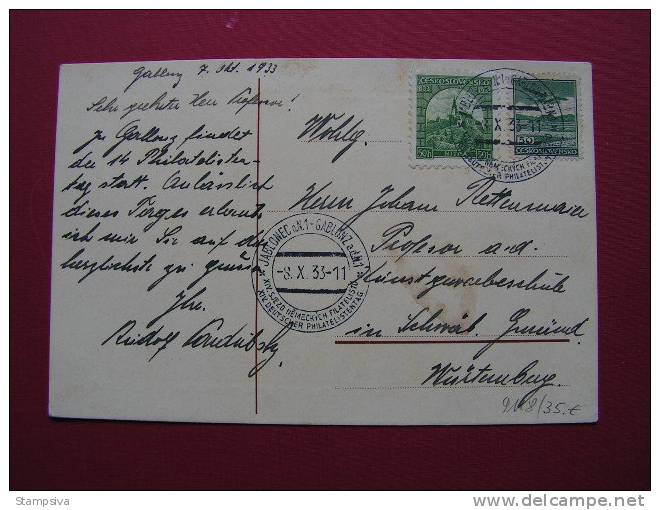 Gablonz 7. Okt. 1933
Sehr geehrter Herr Professor!
zu Gablonz findet
der 14 Philatelisten-
tag statt. Anlässlich
dieses Tages erlaube
ich mir Sie auf das
herzlichste zu grüßen
Ihr
Rudolf
Wohlg.
Herrn Johann
Professor a. d.
Kunstgewerbeschule
in Schwäb. Gmünd.
Württemberg.
9118/35.-€
ČESKOSLOVENSKO
50h 50h
50
ČESKOSLOVENSKO
JABLONEC n.N.1-GABLONZ a.d.N.1
-8.X.33-11
XIV. SJEZD NĚMECKÝCH FILATELISTŮ
XIV. DEUTSCHER PHILATELISTENTAG
X. 33-11
NĚMECKÝCH
DEUTSCHER PHILATELIST
Stampsiva
delcampe.net